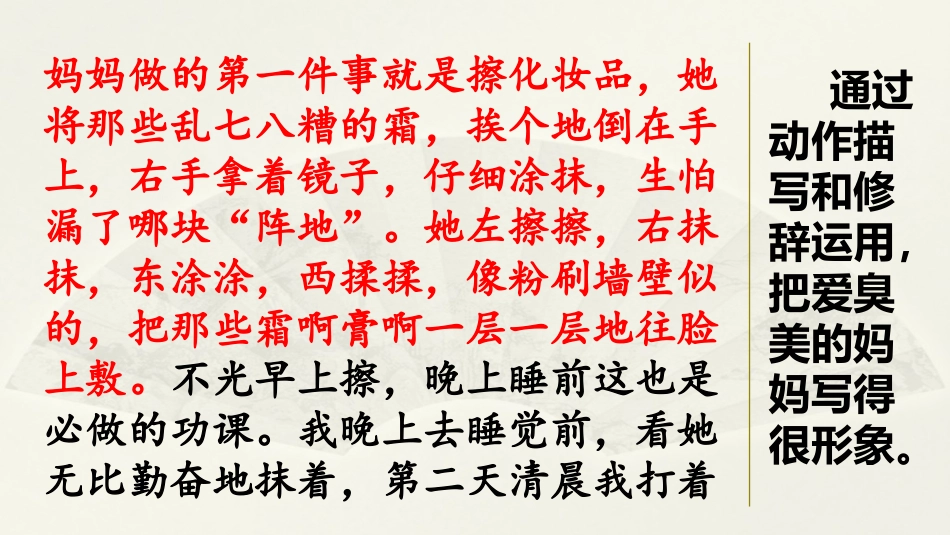 妈妈做的第一件事就是擦化妆品，她
将那些乱七八糟的霜，挨个地倒在手
上，右手拿着镜子，仔细涂抹，生怕
漏了哪块“阵地”。她左擦擦，右抹
抹，东涂涂，西揉揉，像粉刷墙壁似
的，把那些霜啊膏啊一层一层地往脸
上敷。不光早上擦，晚上睡前这也是
必做的功课。我晚上去睡觉前，看她
无比勤奋地抹着，第二天清晨我打着
通过
动作描
写和修
辞运用，
把爱臭
美的妈
妈写得
很形象。